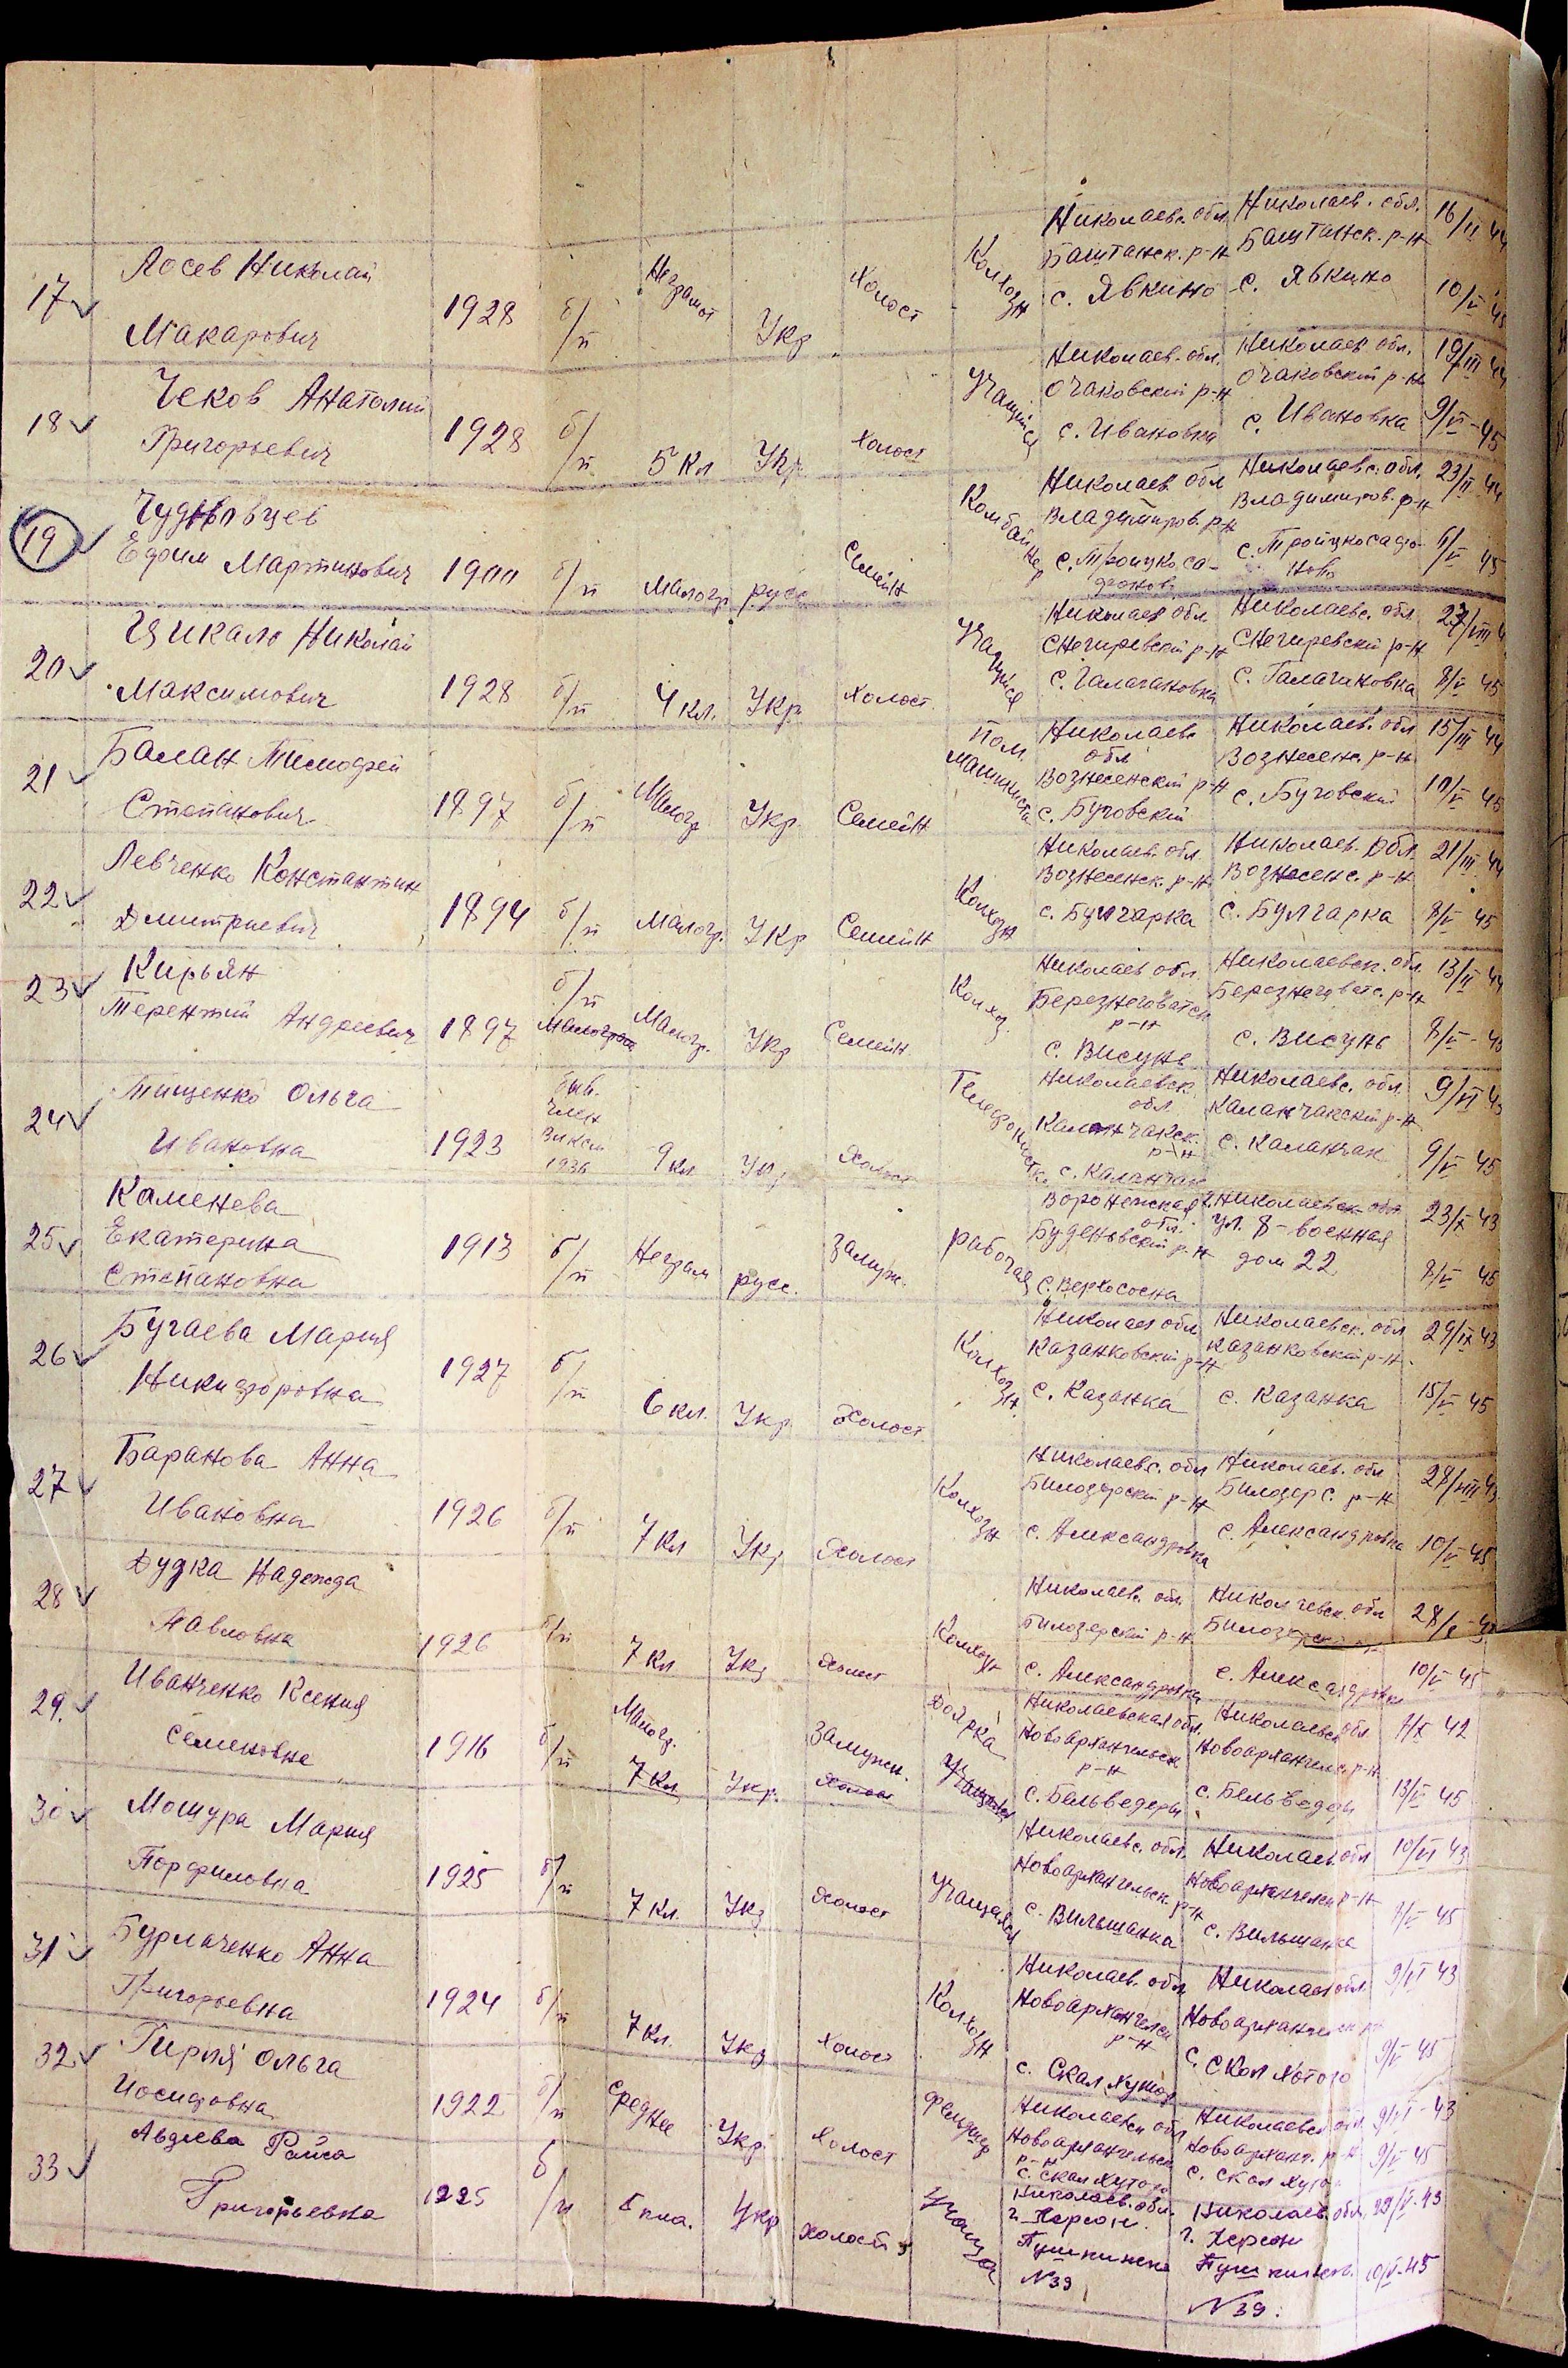 17 Лосев Николай Макарович 1928 б/п Неграмот Укр Холост Колхозн
Николаевс. обл. Баштанск. р-н с. Явкино
Николаев. обл. Баштанск. р-н с. Явкино
16/II 44 10/V 45
18 Чеков Анатолий Григорьевич 1928 б/п 5 кл Укр Холост Учащийся
Николаев. обл. Очаковский р-н с. Ивановка
Николаев обл. Очаковский р-н с. Ивановка
19/III 44 9/V-45
19 Ефрим Мартинович 1900 б/п Малогр. русс Семейн Комбайнер
Николаев. обл Владимиров. р-н с. Троицко са-
Николаевс. обл. Владимиров. р-н с. Троицкосафо-ново
23/II 44 45
20 Цикало Николай Максимович 1928 б/п 4 кл. Укр Холост Учащийся
Николаев обл. Снегиревский р-н с. Галагановка
Николаевс. обл. Снегиревский р-н с. Галагановка
8/V 45
21 Балан Тимофей Степанович 1897 б/п Малогр. Укр. Семейн Пом. машиниста
Николаевс обл Вознесенский р-н с. Буговский
Николаев. обл Вознесенс. р-н с. Буговский
15/III 44 10/V 45
22 Левченко Константин Дмитриевич 1894 б/п Малогр. Укр Семейн Колхозн
Николаев. обл Вознесенск. р-н с. Булгарка
Николаев. обл. Вознесенс. р-н с. Булгарка
21/III 44 8/V 45
23 Кирьян Терентий Андреевич 1897 б/п Малогр. Укр Семейн. Колхоз.
Николаев обл Березнеговатск р-н с. Висунь
Николаевск. обл. Березнеговатс. р-н с. Висунь
13/II 44 8/V-45
24 Тищенко Ольга Ивановна 1923 быв. член 1936 9 кл Укр Холост Телефонистка
Николаевск. обл Каланчакск. р-н с. Каланчак
Николаевс. обл. Каланчакский р-н с. Каланчак
9/VI 43 9/V 45
25 Каменева Екатерина Степановна 1913 б/п Неграм русс. Замуж. рабочая
Воронежская обл. Буденовский р-н с. Верхососна
г. Николаевск обл ул. 8-военная дом 22
23/X 43 8/V 45
26 Бугаева Мария Никифоровна 1927 б/п 6 кл. Укр Холост Колхозн.
Николаев обл Казанковский р-н с. Казанка
Николаевск. обл Казанковский р-н. с. Казанка
29/IX 43 15/V 45
27 Баранова Анна Ивановна 1926 б/п 7 кл Укр Холост Колхозн
Николаевс. обл Билозерский р-н с. Александровка
Николаев. обл Билозерс. р-н с. Александровка
28/VIII 43 10/V 45
28 Дудка Надежда Павловна 1926 б/п 7 кл Укр Холост Колхозн
Николаевс. обл. Билозерский р-н с. Александровка
Николаевск. обл с. Александровка
28/X-43 10/V 45
29. Иванченко Ксения Семеновна 1916 б/п Малогр. 7 кл Укр. Замужн. Холост Доярка Учащаяся
Николаевская обл. Новоархангельск р-н с. Бельведеры
Николаевск обл Новоархангельс р-н с. Бельведеры
42 45
30 Мошура Мария Порфиловна 1925 б/п 7 кл. Укр Холост Учащаяся
Николаевс. обл. Новоархангельск. р-н с. Вильшанка
Николаев. обл Новоархангельск р-н с. Вильшанка
10/VI 43 9/V 45
31 Бурлаченко Анна Григорьевна 1924 б/п 7 кл. Укр Холост Колхозн
Николаев. обл Новоархангельск р-н с. Скал.
Николаев обл. Новоархангельск с. Скал
9/VI 43 9/V 45
32 Гирля Ольга Иосифовна 1922 б/п Среднее Укр. Холост Фельдшер
Николаевск обл Новоархангельск р-н с. Скал Хутора
Николаевск обл Новоарханг. р-н с. Скал Хутора
9/VI-43 9/V 45
33 Авдеева Раиса Григорьевна 1925 б/п 6 кла. Укр Холост Учащая
Николаев. обл. г. Херсон. Пушкинска №39
Николаев. обл, г. Херсон №39.
29/V-43 10/V-45